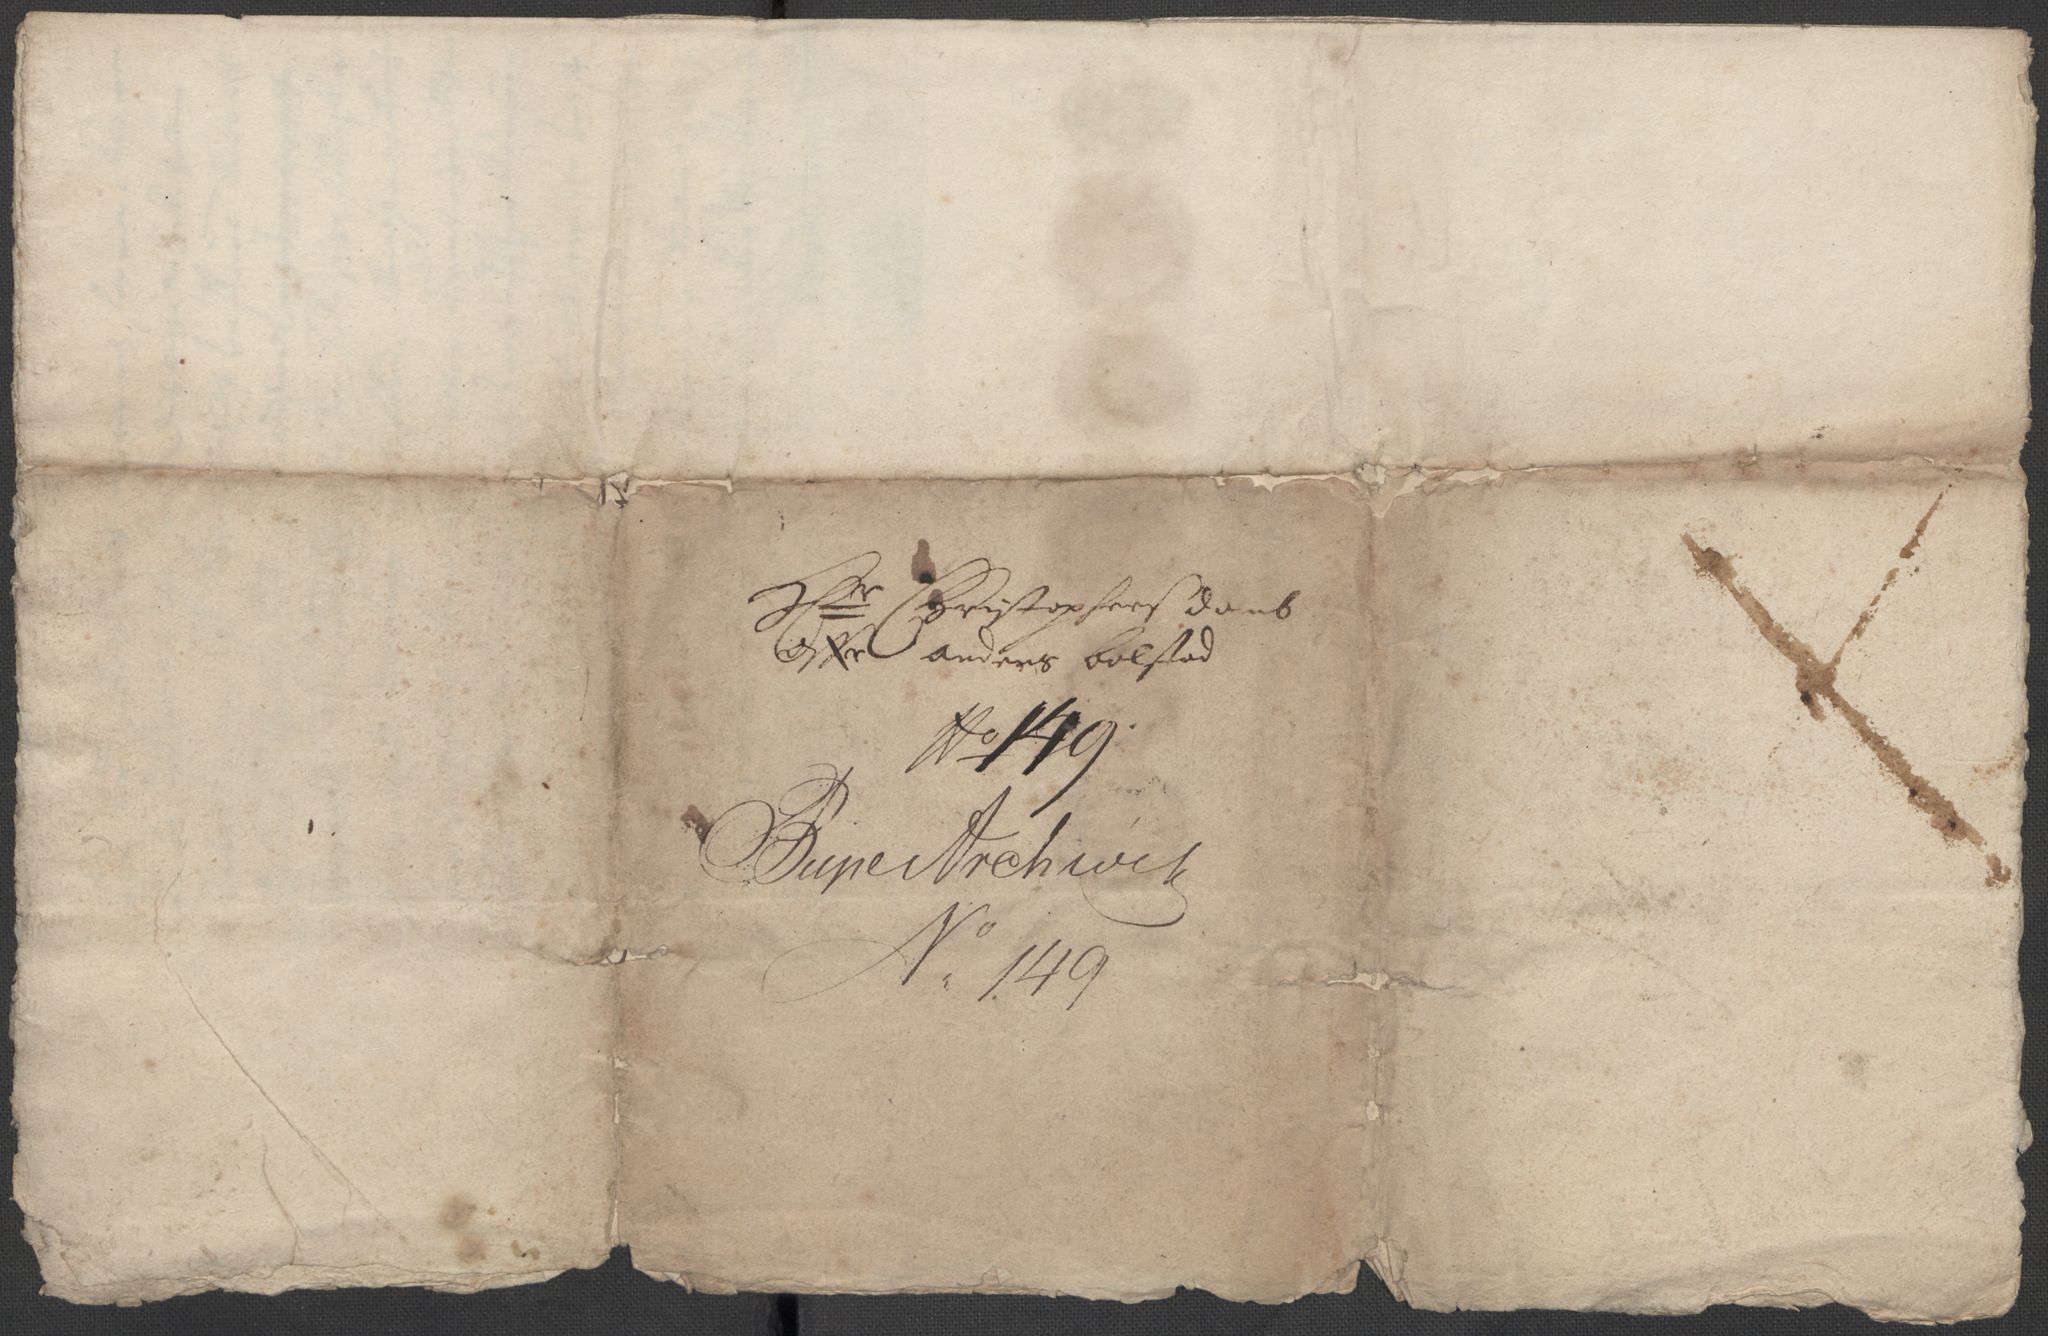 Hr Christophers damb
offr anders bolstad
No 149.
Bupe Archivet
No. 149